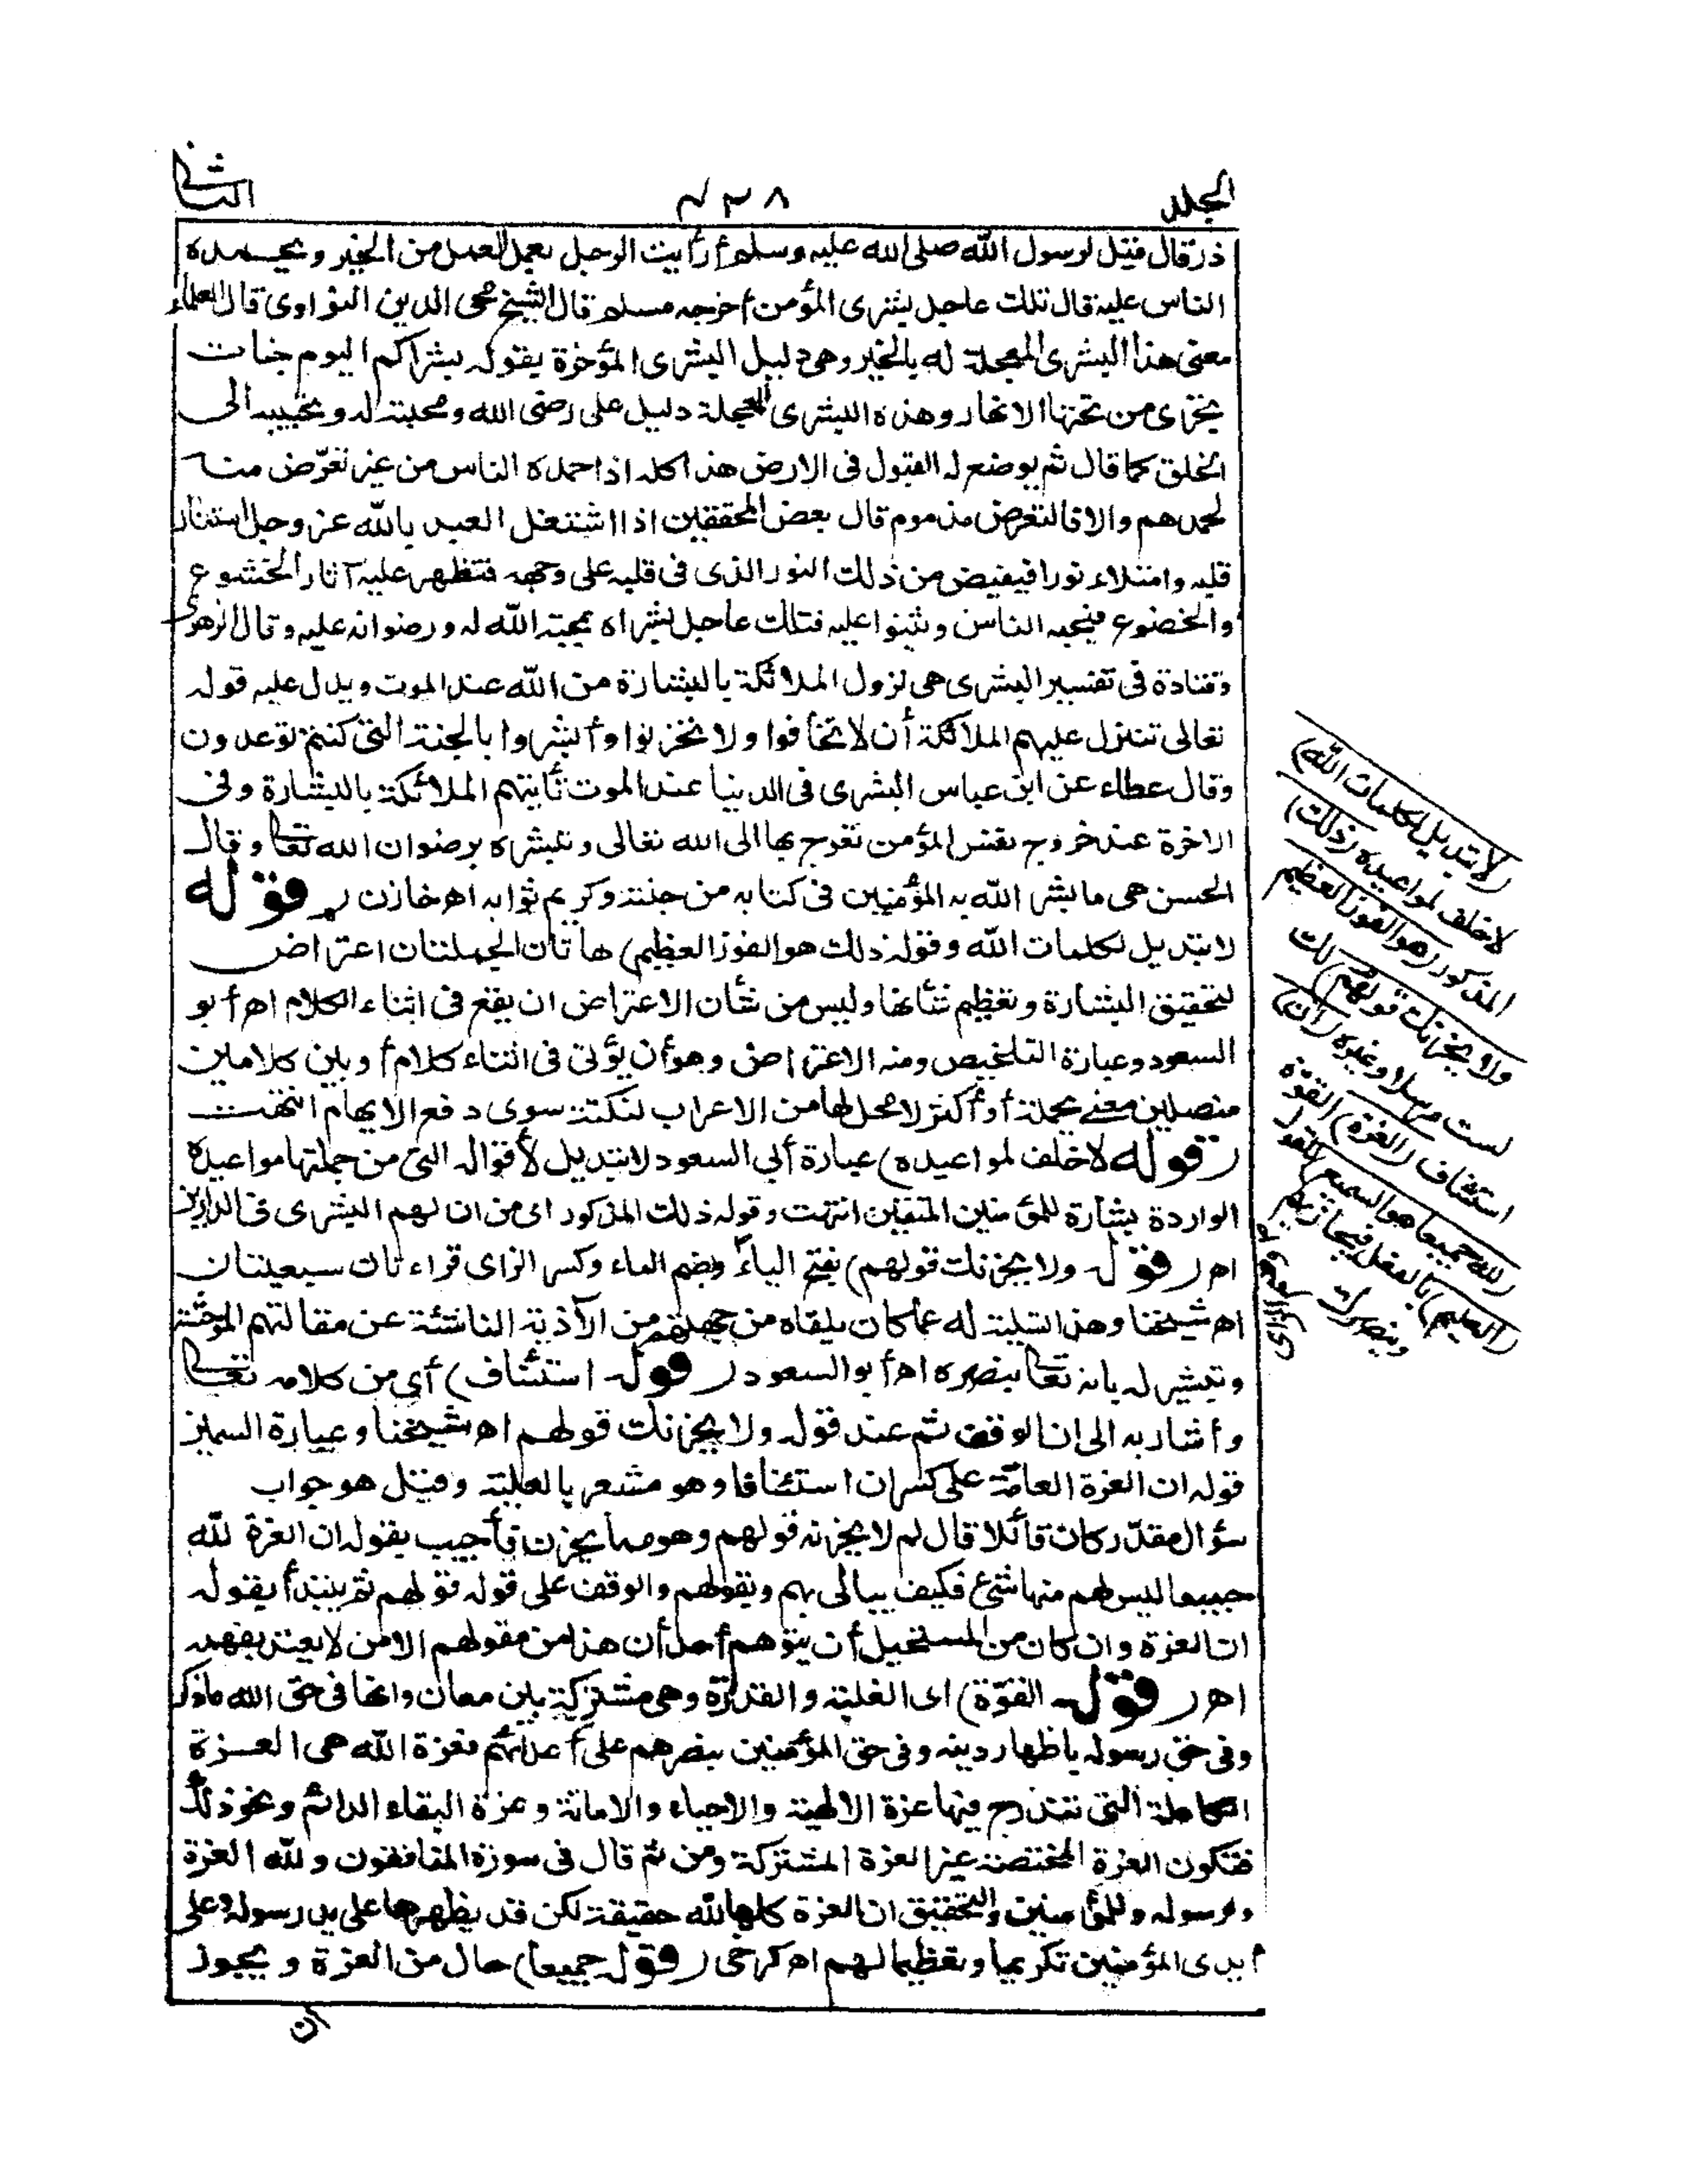 المجلد
٤٢٨
الثانى
ذر قال قيل لرسول الله صلى الله عليه وسلم أرأيت الرجل يعمل العمل من الخير ويحمده
الناس عليه قال تلك عاجل بشرى المؤمن أخرجه مسلم قال الشيخ محى الدين النواوى قال العلماء
معنى هذا البشرى المعجلة له بالخير وهى دليل البشرى المؤخرة بقوله بشراكم اليوم جنات
تجرى من تحتها الانهار وهذه البشرى المعجلة دليل على رضى الله ومحبته له وتحبيبه الى
الخلق كما قال ثم يوضع له القبول فى الارض هذا كله اذا حمده الناس من غير تعرّض منه
لحمدهم والا فالتعرض مذموم قال بعض المحققين اذا اشتغل العبد بالله عز وجل استنار
قلبه وامتلاء نورا فيفيض من ذلك النور الذى فى قلبه على وجهه فتظهر عليه آثار الخشوع
والخضوع فيحبه الناس ويثنوا عليه فتلك عاجل بشراه بمحبته الله له ورضوانه عليه وقال الزهرى
وقتادة فى تفسير البشرى هى نزول الملائكة بالبشارة من الله عند الموت ويدل عليه قوله
تعالى تتنزل عليهم الملائكة أن لا تخافوا ولا تحزنوا وأبشروا بالجنة التى كنتم توعدون
وقال عطاء عن ابن عباس البشرى فى الدنيا عند الموت تأتيهم الملائكة بالبشارة وفى
الاخرة عند خروج نفس المؤمن تعرج بها الى الله تعالى وتبشره برضوان الله تعا وقال
الحسن هى ما بشر الله به المؤمنين فى كتابه من جنته وكريم ثوابه اه خازن (قوله
لا تبديل لكلمات الله وقوله ذلك هو الفوز العظيم) هاتان الجملتان اعتراض
لتحقيق البشارة وتعظيم شأنها وليس من شأن الاعتراض ان يقع فى اثناء الكلام اه أبو
السعود وعبارة التلخيص ومنه الاعتراض وهو أن يؤتى فى اثناء كلام أو بين كلامين
متصلين معنى بجملة أو أكثر لا محل لها من الاعراب لنكتة سوى دفع الايهام انتهت
(قوله لا خلف لمواعيده) عبارة أبي السعود لا تبديل لأقواله التى من جملتها مواعيده
الواردة بشارة للمؤمنين المتقين انتهت وقوله ذلك المذكور اى من ان لهم البشرى فى الدارين
اه (قوله ولا يحزنك قولهم) بفتح الياء وبضم الياء وكسر الزاى قراءتان سبعيتان
اه شيخنا وهذا تسلية له عما كان يلقاه من جهتهم من الآذية الناشئة عن مقالتهم الموحشة
وتبشير له بانه تعا ينصره اه أبو السعود (قوله استئناف) أى من كلامه تعا
وأشار به الى ان الوقف ثم عند قوله ولا يحزنك قولهم اه شيخنا وعبارة السمين
قوله ان العزة العامّة على كسر ان استئنافا وهو مشعر بالعلية وقيل هو جواب
سؤال مقدّر كان قائلا قال لم لا يحزنه قولهم وهو مما يحزن فأجيب بقوله ان العزة لله
جميعا ليس لهم منها شئ فكيف يبالى بهم وبقولهم والوقف على قوله قولهم ثم يبتدأ بقوله
ان العزة وان كان من المستحيل أن يتوهم أحد أن هذا من مقولهم الا من لا يعتد بفهمه
اه (قوله القوّة) اى الغلبة والقدرة وهى مشتركة بين معان وانها فى حق الله ما ذكر
وفى حق رسوله باظهار دينه وفى حق المؤمنين بنصرهم على أعدائهم فعزة الله هى العزة
الكاملة التى تندرج فيها عزة الالهية والاحياء والاماتة وعزة البقاء الدائم ونحو ذلك
فتكون العزة المختصة غير العزة المشتركة ومن ثم قال فى سورة المنافقون ولله العزة
ولرسوله وللمؤمنين والتحقيق ان العزة كلها لله حقيقة لكن قد يظهرها على يد رسوله وعلى
أيدى المؤمنين تكريما وتعظيما لهم اه كرخى (قوله جميعا) حال من العزة ويجوز
ان
(لا تبديل لكلمات الله)
لا خلف لمواعيده (ذلك)
المذكور (هو الفوز العظيم
ولا يحزنك قولهم) لك
لست مرسلا وغيره (ان)
استئناف (العزة) القوّة
(لله جميعا هو السميع) للقول
(العليم) بالفعل فيجازيهم
وينصرك